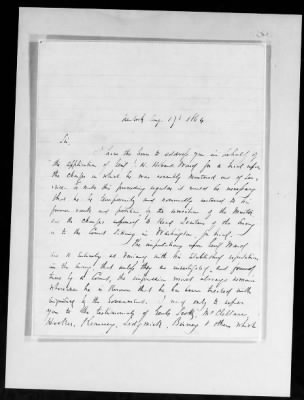 New York Aug. 17th 1864
Sir,
I have the honor to address you in behalf of
the application of Genl J. H. Hobart Ward for a trial upon
the charges on which he was recently mustered out of Ser-
vice. To make this proceeding regular it would be necessary
that he be temporarily and nominally restored to his
former rank and position, by the revocation of the muster
out, the charges referred to Head Quarters of the Army
to the Court sitting in Washington for trial.
The imputations upon Genl Ward
are so entirely at variance with his established reputation
in the army, that unless they are investigated, and passed
upon by a Court, the impression must always remain
wherever he is known that he has been treated with
injustice by the Government. I need only to refer
you to the testimony of Genls Scott, McClellan,
Hooker, Kearney, Sedgwick, Birney & others which